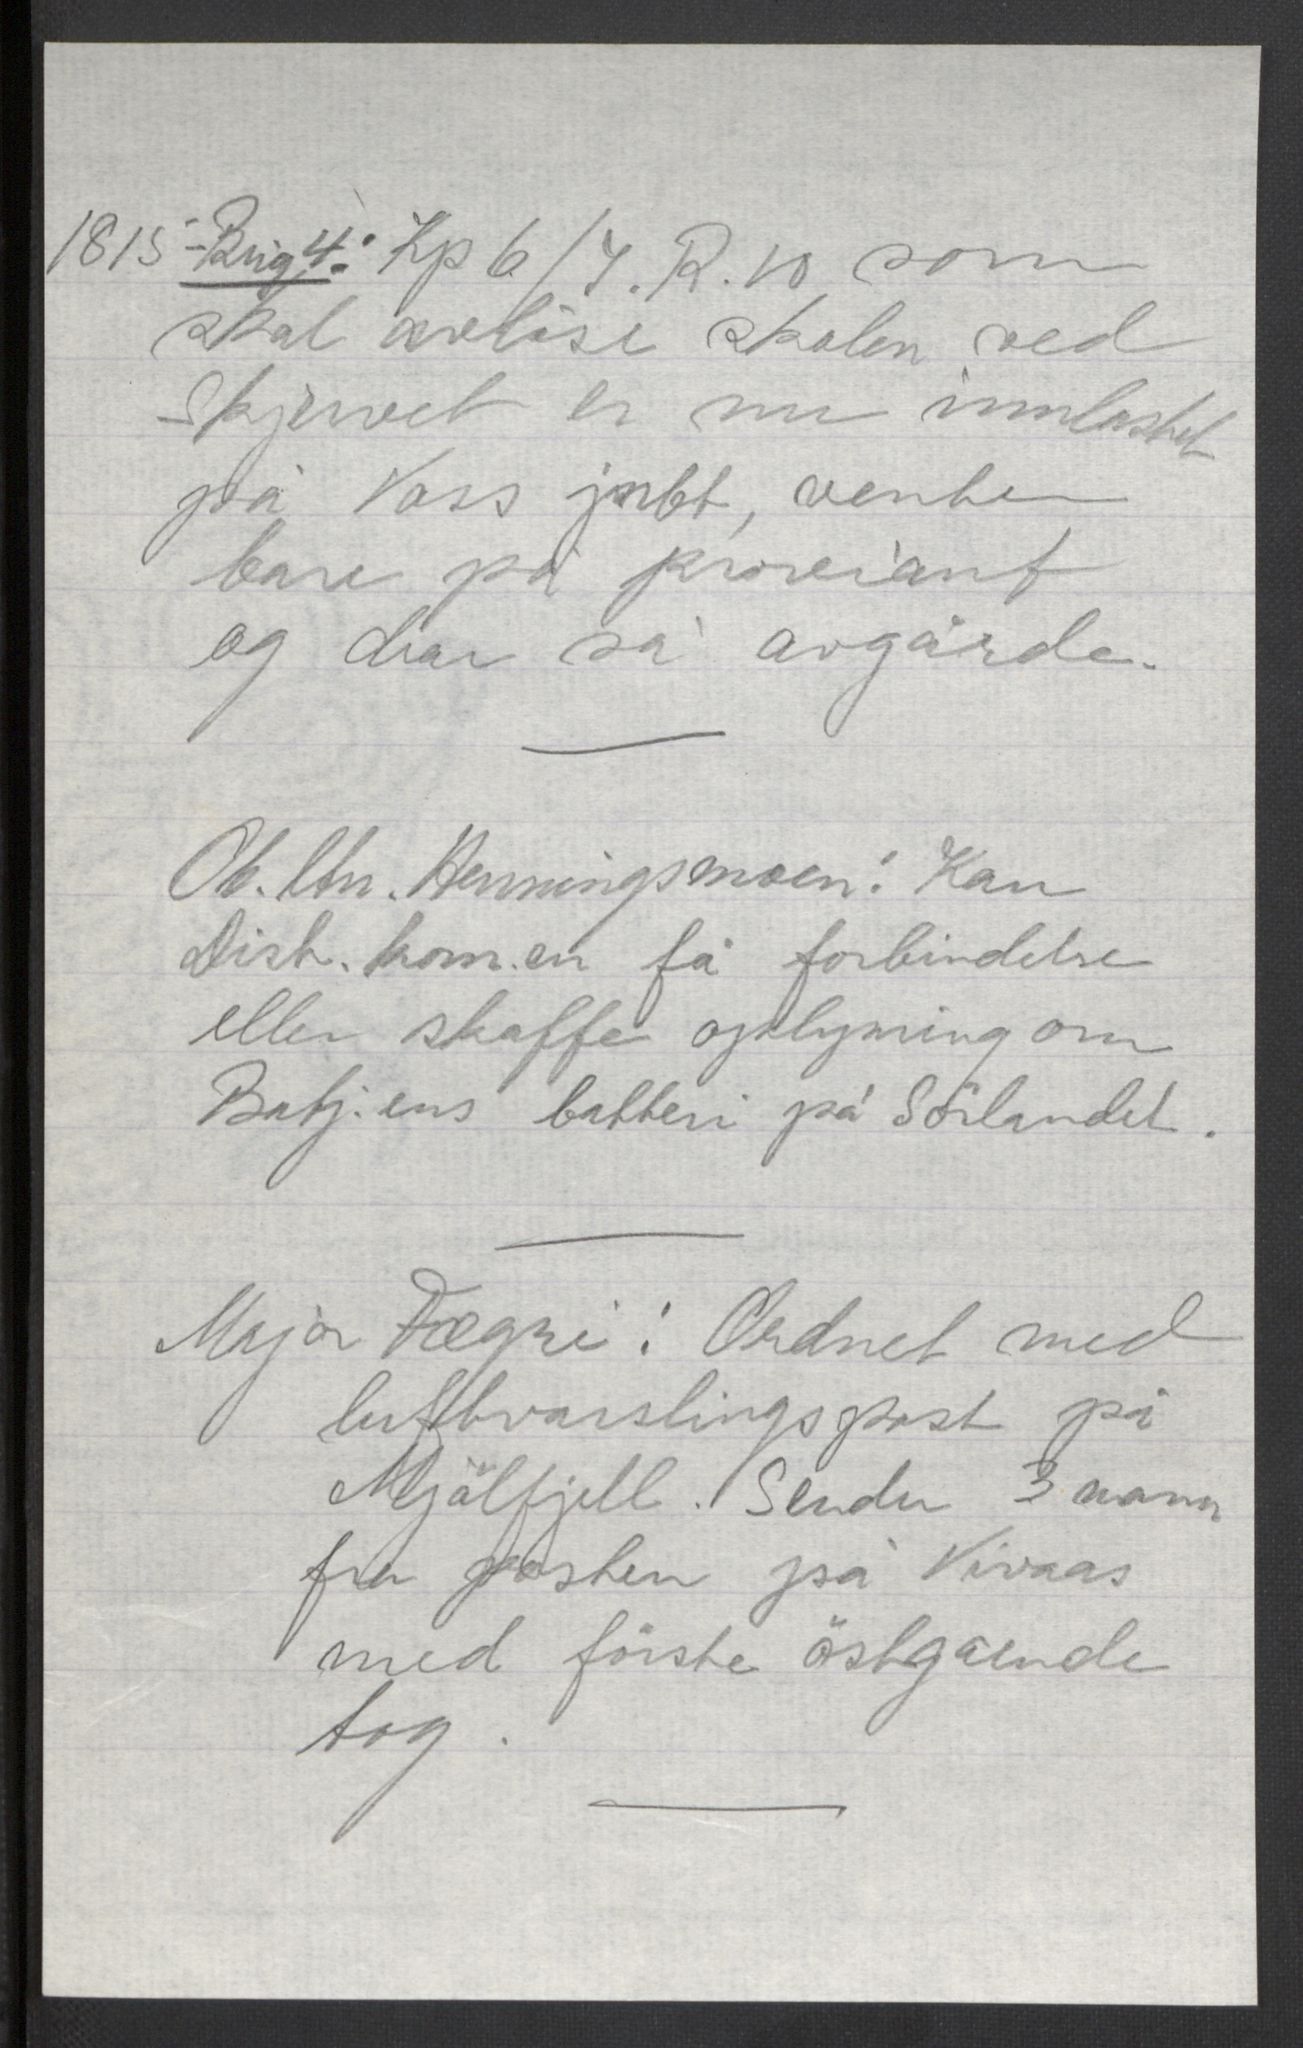 1815 - Brig 4: Kp 6/I.R.10 som
skal avlöse skolen ved
Skjervet er nu innlastet
på Voss jnbt, venter
bare på proviant
og drar så avgårde.
Ob.ltn. Henningsmoen: Kan
Distr.kom.en få forbindelse
eller skaffe oplysning om
Batj.ens batteri på Sörlandet.
Major Fægri: Ordnet med
luftvarslingspost på
Mjölfjell. Sender 3 mann
fra posten på Vivaas
med förste östgaende
tog.